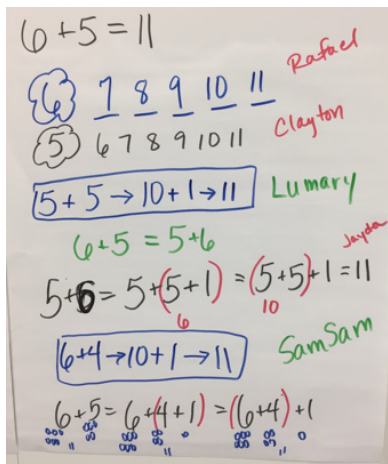 6 + 5 = 11
Rafael
6 7 8 9 10 11
Clayton
5 6 7 8 9 10 11
5 + 5 → 10 + 1 → 11 Lumary
6 + 5 = 5 + 6
Jayda
5 + 6 = 5 + (5 + 1) = (5 + 5) + 1 = 11
6 10
SamSam
6 + 4 → 10 + 1 → 11
6 + 5 = 6 + (4 + 1) = (6 + 4) + 1